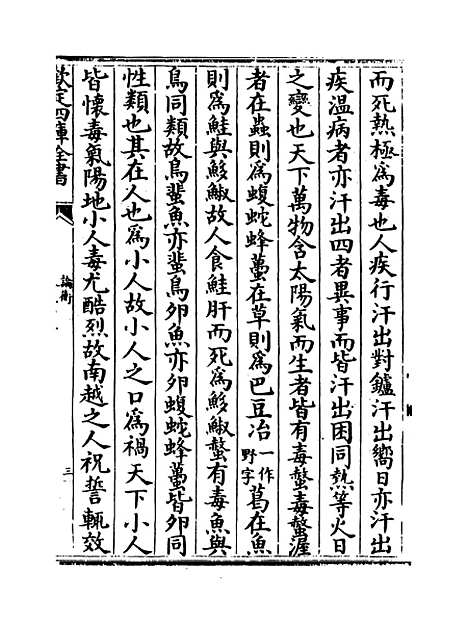 而死熱極爲毒也人疾行汗出對鑪汗出嚮日亦汗出
疾温病者亦汗出四者異事而皆汗出困同熱等火日
之變也天下萬物含太陽氣而生者皆有毒螫毒螫渥
者在蟲則爲蝮蛇蜂蠆在草則爲巴豆冶一作野字葛在魚
則爲鮭與䱥䱜故人食鮭肝而死爲䱥䱜螫有毒魚與
鳥同類故鳥蜚魚亦蜚鳥卵魚亦卵蝮蛇蜂蠆皆卵同
性類也其在人也爲小人故小人之口爲禍天下小人
皆懷毒氣陽地小人毒尤酷烈故南越之人祝誓輒效
欽定四庫全書
論衡
三